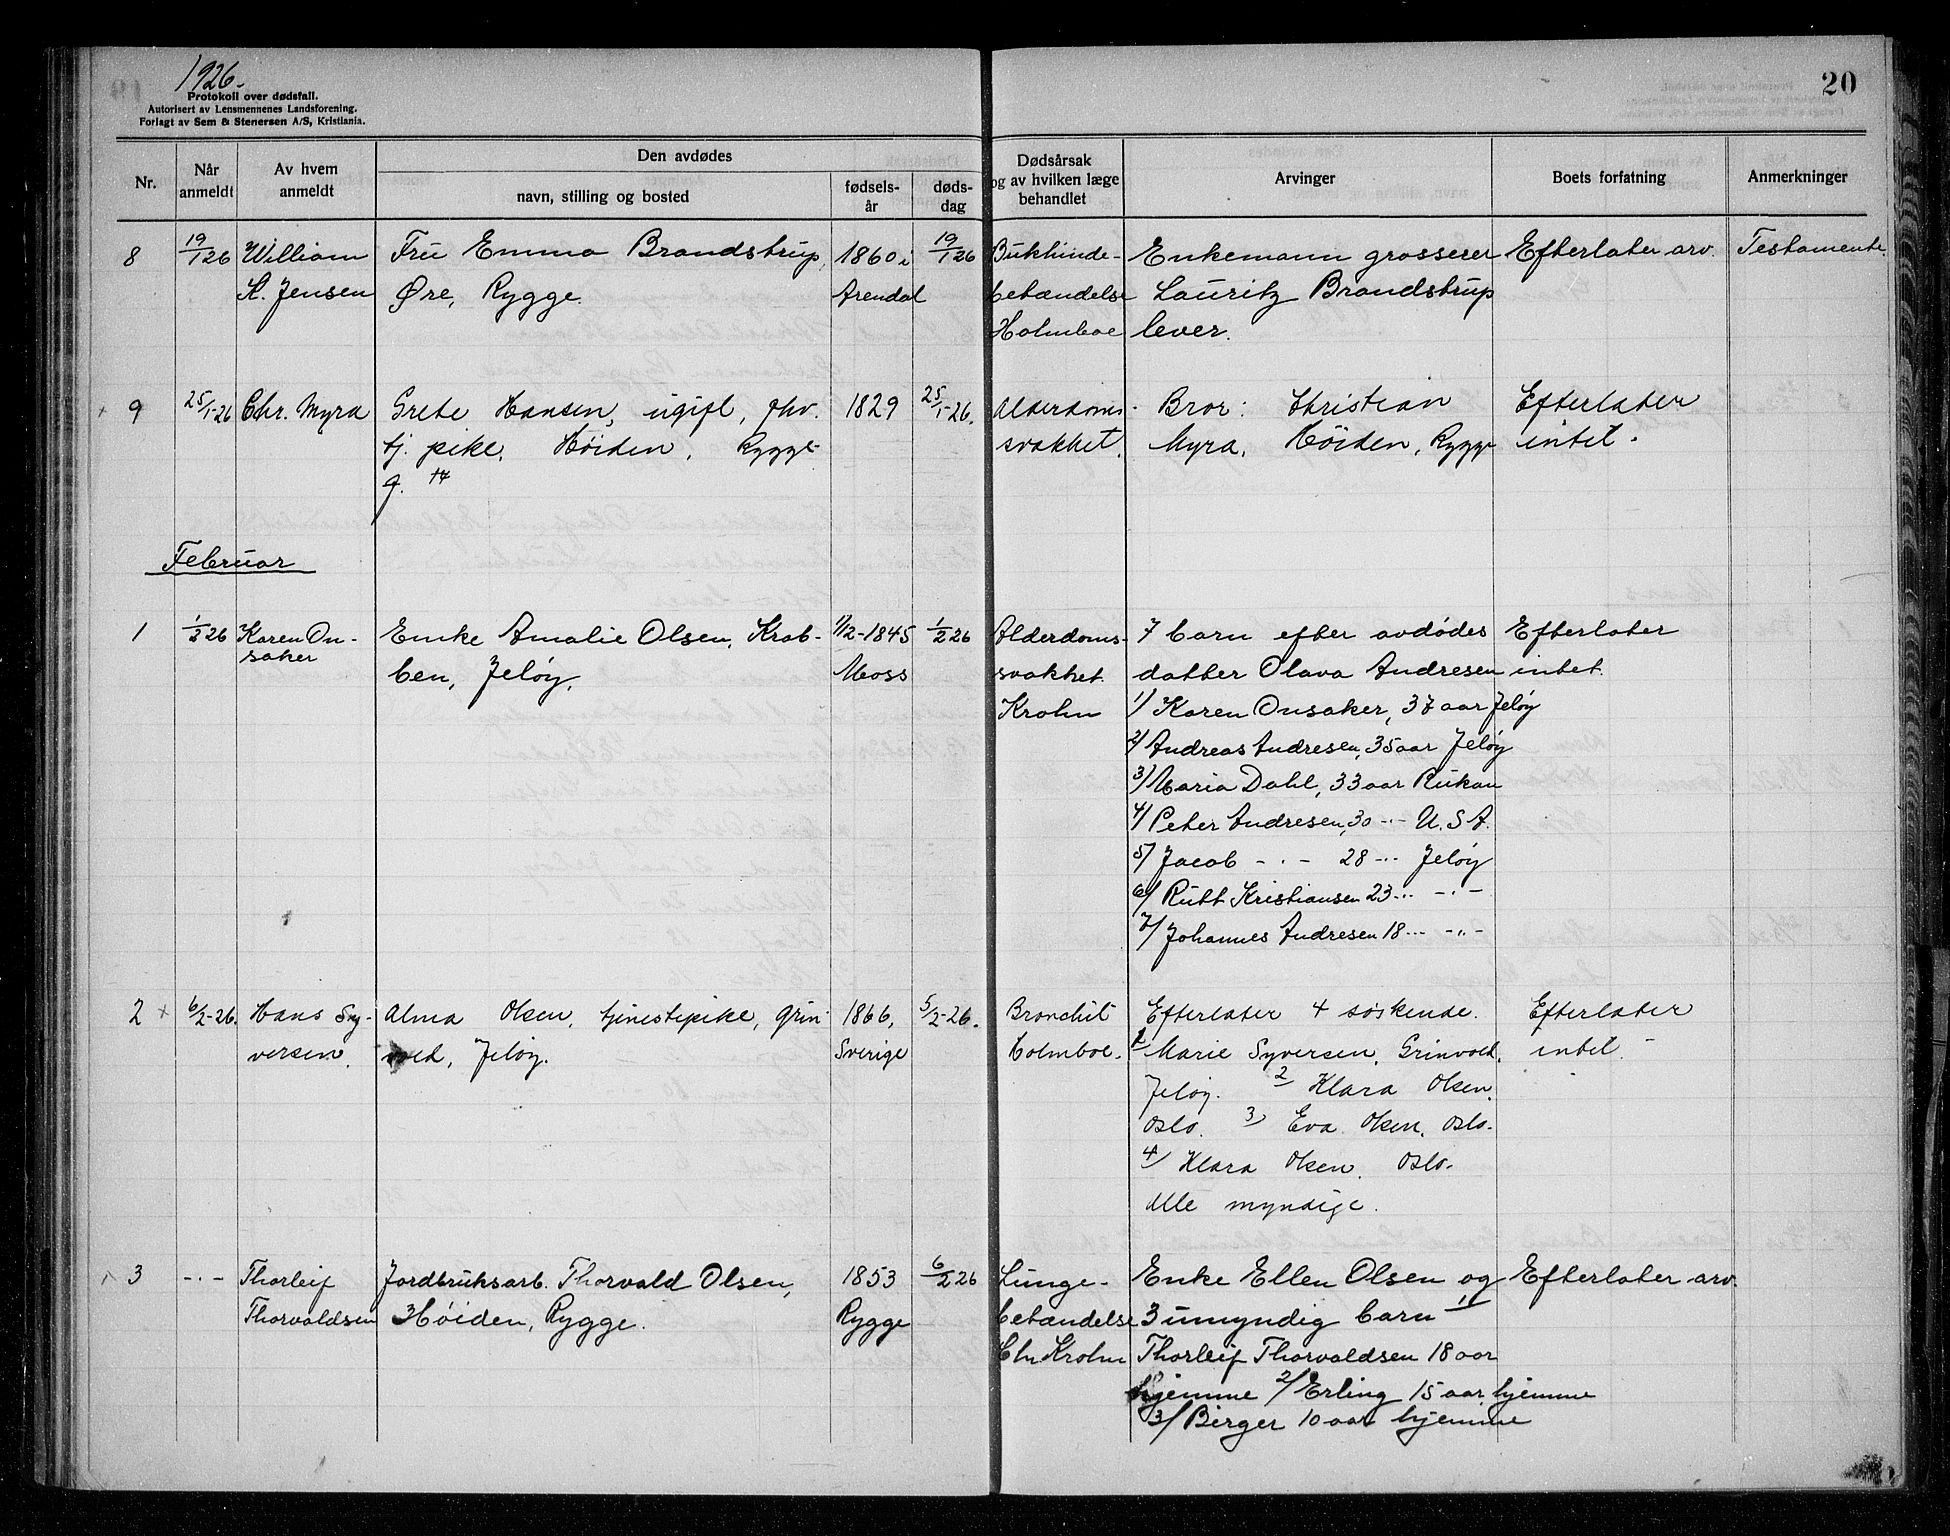 1926.
Protokoll over dødsfall.
Autorisert av Lensmennenes Landsforening.
Forlagt av Sem & Stenersen A/S, Kristiania.
20
Nr.
Når anmeldt
Av hvem anmeldt
Den avdødes
navn, stilling og bosted
fødsels-år
døds-dag
Dødsårsak og av hvilken læge behandlet
Arvinger
Boets forfatning
Anmerkninger
8 19/1 26 William Fru Emma Brandstrup, 1860 i 19/1 26 Bukhinde- Enkemann grosserer Efterlater arv. Testamente.
K. Jensen Øre, Rygge. Arendal betændelse Lauritz Brandstrup
Holmboe lever.
9 25/1-26 Chr. Myra Grete Hansen, ugift, fhv. 1829 25/1-26. Alderdoms- Bror: Christian Efterlater
tj. pike. Høiden, Rygge svakhet. Myra, Høiden, Rygge intet.
Februar
1 1/2 26 Karen On- Enke Amalie Olsen, Krab- 1/12-1845 1/2 26 Alderdoms- 7 barn efter avdødes Efterlater
saker ben, Jeløy. Moss svakhet. datter Olava Andresen intet.
Krohn 1/ Karen Onsaker, 37 aar Jeløy
2/ Andreas Andresen, 35 aar Jeløy
3/ Maria Dahl, 33 aar Rukan
4/ Peter Andresen, 30 -"- U.S.A.
5/ Jacob -"- 28 -"- Jeløy
6/ Rutt Kristiansen 23 -"- -"-
7/ Johannes Andresen 18 -"- -"-
2 x 6/2-26. Hans Sy- Alma Olsen, tjenestepike, Grin- 1866, 5/2-26. Bronchit Efterlater 4 søskende. Efterlater
versen. vold, Jeløy. Sverige Holmboe. 1/ Marie Syversen, Grinvold, intet.
Jeløy. 2/ Klara Olsen,
Oslo. 3/ Eva Olsen, Oslo.
4/ Klara Olsen, Oslo.
Alle myndige.
3 -"- Thorleif Jordbruksarb. Thorvald Olsen, 1853 6/2 26 Lunge- Enke Ellen Olsen og Efterlater arv.
Thorvaldsen Høiden, Rygge. Rygge betændelse 3 umyndig barn 1/
Chr Krohn Thorleif Thorvaldsen 18 aar
hjemme 2/ Erling 15 aar hjemme
3/ Birger 10 aar hjemme